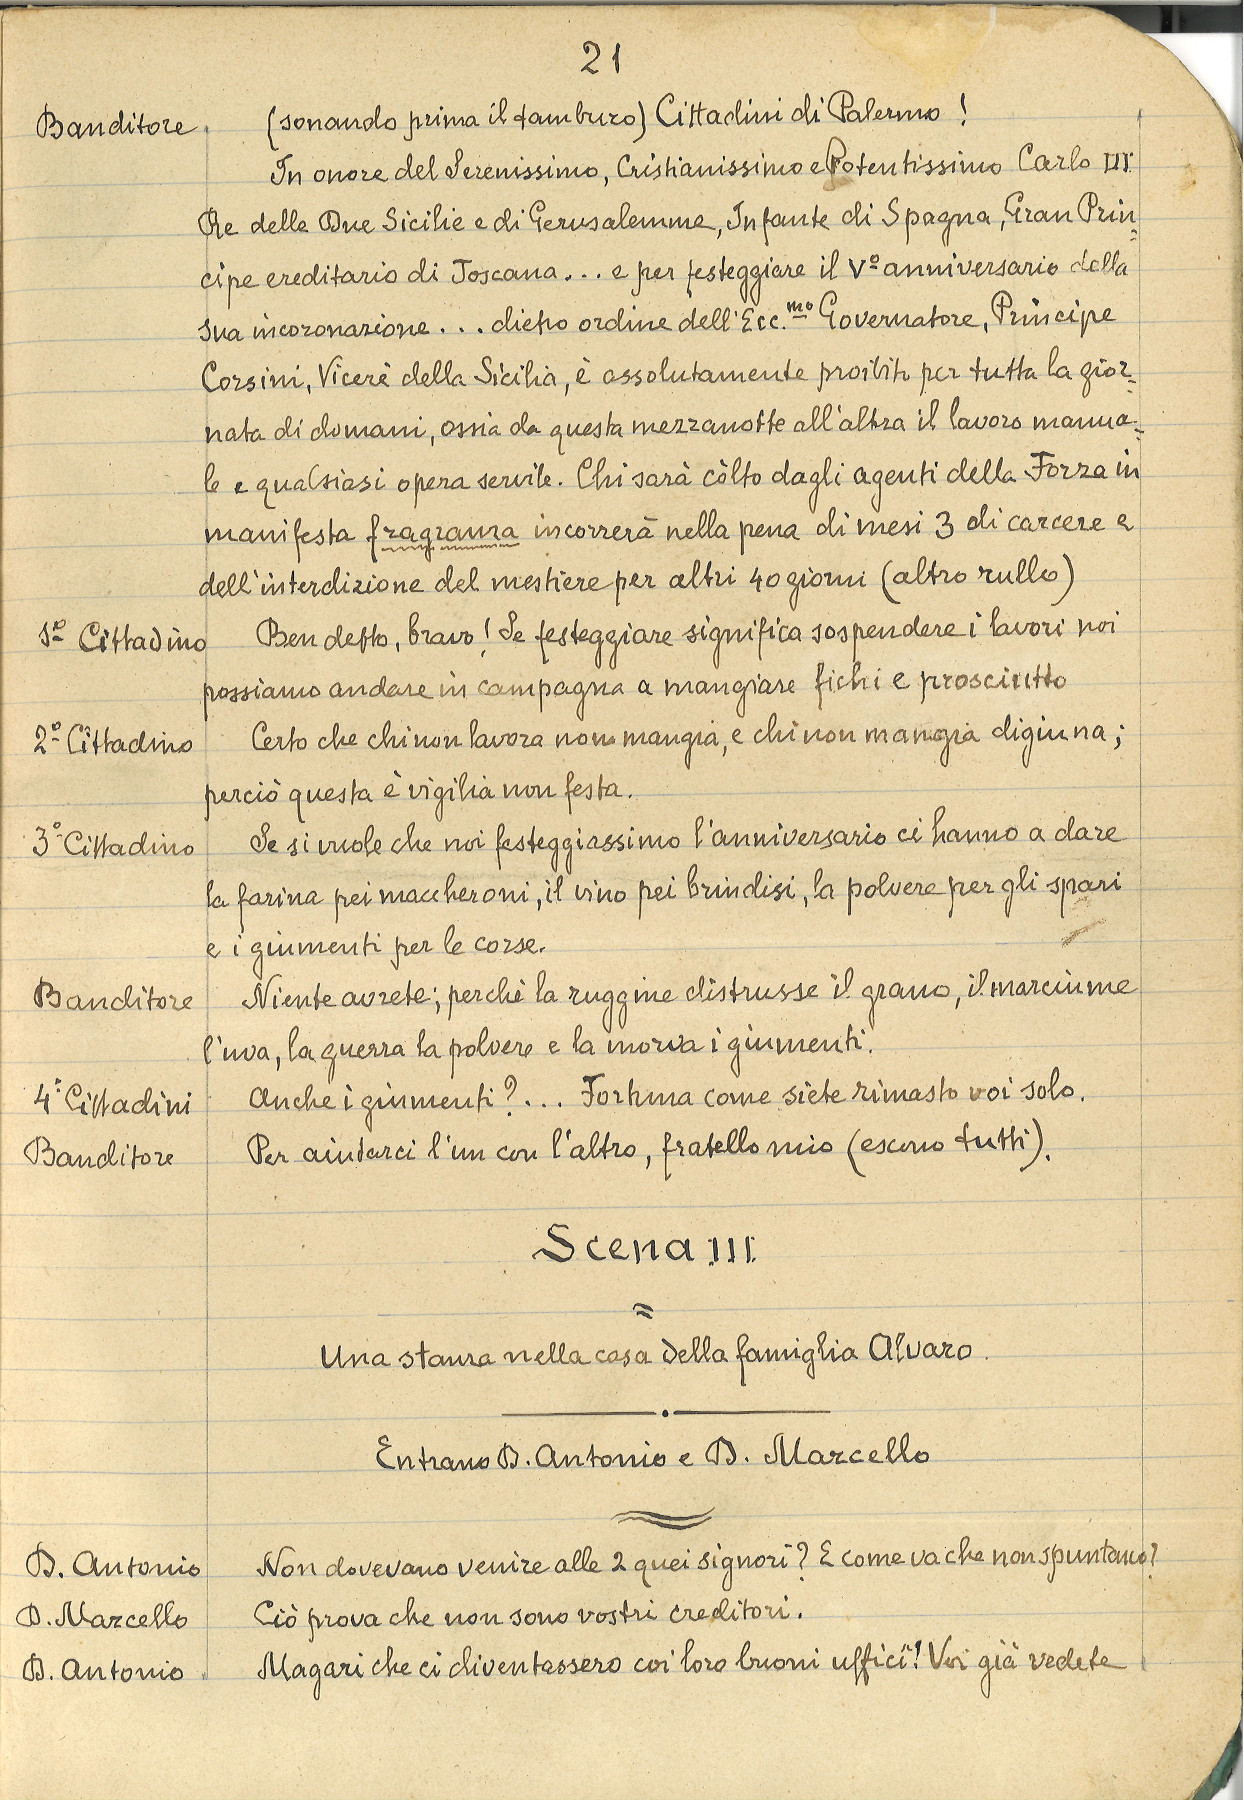 21
Banditore (sonando prima il tamburo) Cittadini di Palermo!
In onore del Serenissimo, Cristianissimo e Potentissimo Carlo III
Re delle Due Sicilie e di Gerusalemme, Infante di Spagna, Gran Prin=
cipe ereditario di Toscana... e per festeggiare il Vº anniversario della
sua incoronazione... dietro ordine dell'Ecc.mo Governatore, Principe
Corsini, Vicerè della Sicilia, è assolutamente proibito per tutta la gior=
nata di domani, ossia da questa mezzanotte all'altra il lavoro manua=
le e qualsiasi opera servile. Chi sarà còlto dagli agenti della Forza in
manifesta fragranza incorrerà nella pena di mesi 3 di carcere e
dell'interdizione del mestiere per altri 40 giorni (altro rullo)
1º Cittadino Ben detto, bravo! Se festeggiare significa sospendere i lavori noi
possiamo andare in campagna a mangiare fichi e prosciutto
2º Cittadino Certo che chi non lavora non mangia, e chi non mangia digiuna;
perciò questa è vigilia non festa.
3º Cittadino Se si vuole che noi festeggiassimo l'anniversario ci hanno a dare
la farina pei maccheroni, il vino pei brindisi, la polvere per gli spari
e i giumenti per le corse.
Banditore Niente avrete; perchè la ruggine distrusse il grano, il marciume
l'uva, la guerra la polvere e la morva i giumenti.
4º Cittadini Anche i giumenti?... Fortuna come siete rimasto voi solo.
Banditore Per aiutarci l'un con l'altro, fratello mio (escono tutti).
Scena III
Una stanza nella casa della famiglia Alvaro.
Entrano D. Antonio e D. Marcello
D. Antonio Non dovevano venire alle 2 quei signori? E come va che non spuntano?
D. Marcello Ciò prova che non sono vostri creditori.
D. Antonio Magari che ci diventassero coi loro buoni uffici! Voi già vedete